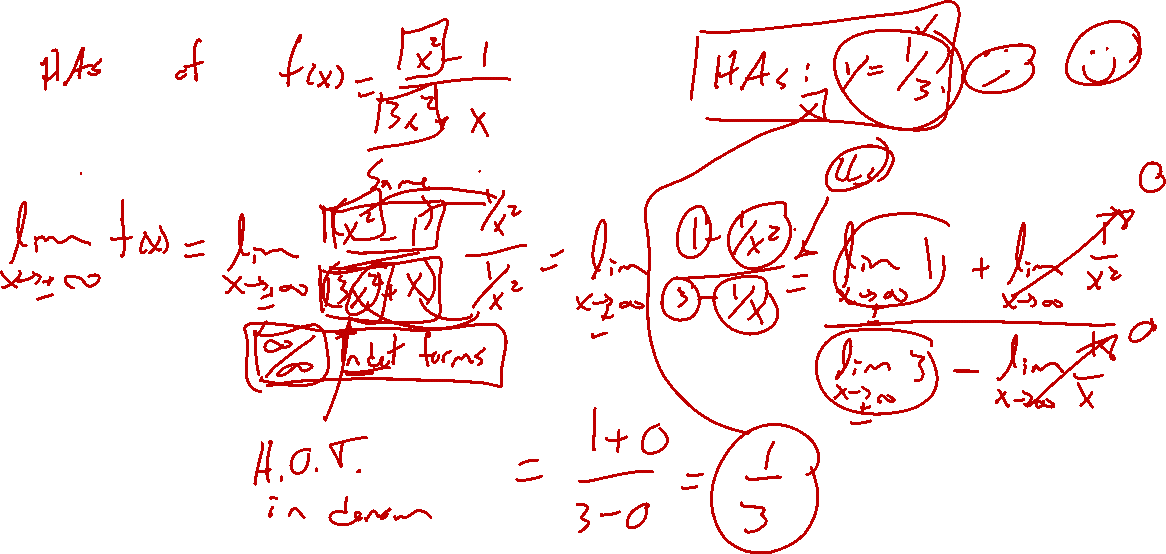 HAs of f(x) = (x² - 1)/(3x² + x)
HAs: y = 1/3
Same
lim x→±∞ f(x) = lim x→±∞ (x² - 1)/(3x² + x) · (1/x²)/(1/x²) = lim x→±∞ (1 - 1/x²)/(3 - 1/x) = (lim x→±∞ 1 + lim x→±∞ 1/x²)/(lim x→±∞ 3 - lim x→±∞ 1/x)
0
0
∞/∞ indet forms
H.O.T.
in denom
= (1+0)/(3-0) = 1/3